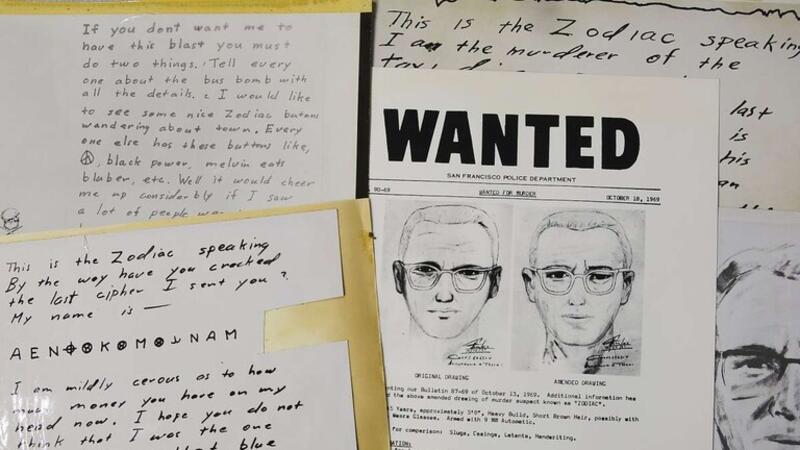 If you dont want me to
have this blast you must
do two things. Tell every
one about the bus bomb with
all the details. 2 I would like
to see some nice Zodiac butons
wandering about town. Every
one else has these buttons like,
☮, black power, melvin eats
bluber, etc. Well it would cheer
me up considerbly if I saw
a lot of people
This is the Zodiac speaking
By the way have you cracked
the last cipher I sent you?
My name is —
A E N ⌖ K M NAM
I am mildly cerous as to how
much money you have on my
head now. I hope you do not
think that I was the one
that blue
This is the Zodiac speaking
I am the murderer of the
last
is
his
WANTED
SAN FRANCISCO POLICE DEPARTMENT
90-69 WANTED FOR MURDER OCTOBER 18, 1969
ORIGINAL DRAWING AMENDED DRAWING
our Bulletin 87-69 of October 13, 1969. Additional information has
the above amended drawing of murder suspect known as "ZODIAC".
Years, approximately 5'8", Heavy Build, Short Brown Hair, possibly with
Wears Glasses. Armed with 9 MM Automatic.
for comparison: Slugs, Casings, Latents, Handwriting.